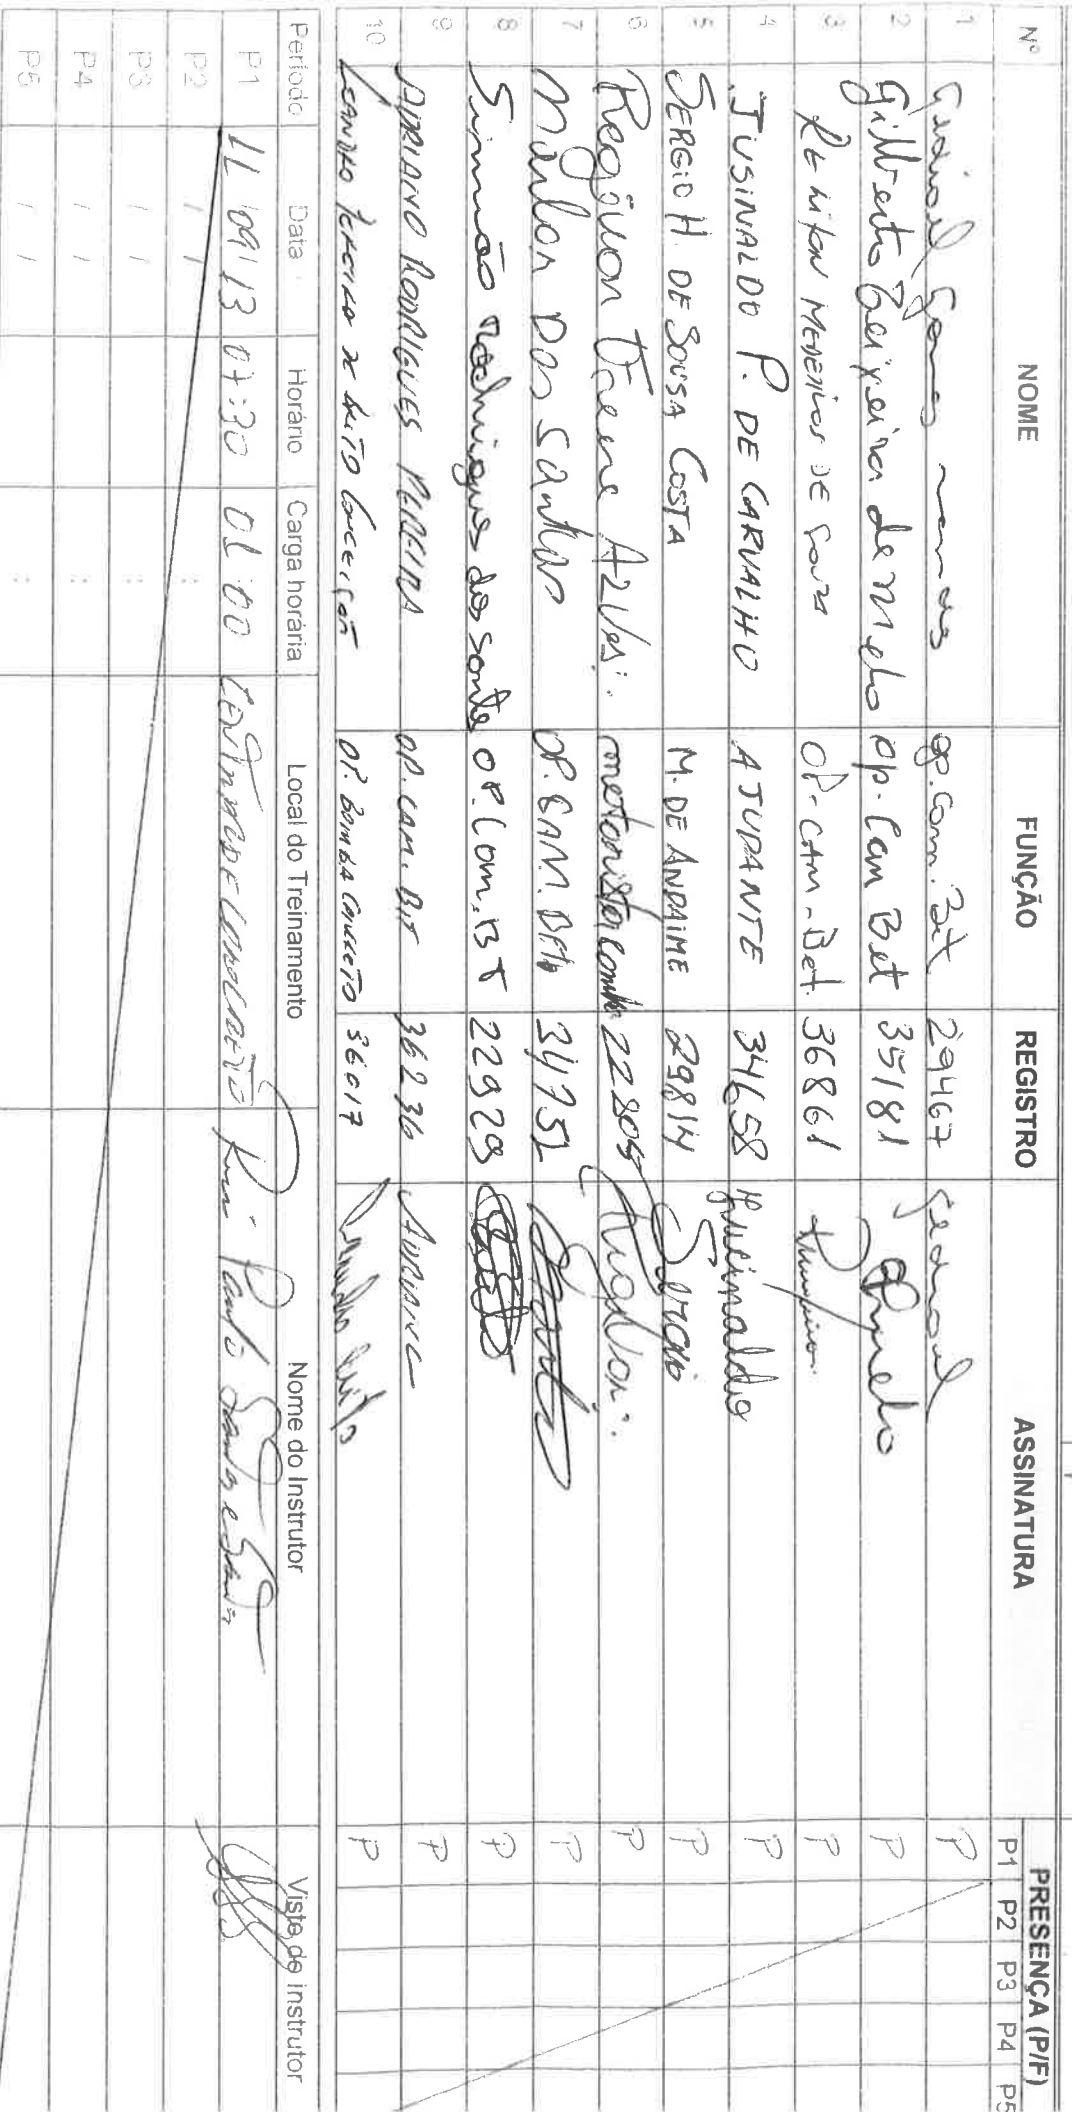 Nº NOME FUNÇÃO REGISTRO ASSINATURA PRESENÇA (P/F)
P1 P2 P3 P4 P5
1 Gedioel Gomes op. Cam. Bet 29467 Gedioel P
2 Gilberto Teixeira de Melo op. Cam Bet 35181 P
3 MEDEIROS DE OP. CAM. Bet. 36861 P
4 JUSINALDO P. DE CARVALHO AJUDANTE 34658 Jucinaldo P
5 SERGIO H. DE SOUSA COSTA M. DE ANDAIME 29814 Sergio P
6 motorista 22809 P
7 Marlon Dos Santos OP. CAM. 34751 P
8 Simão Rodrigues dos Santos OP. Com. BT 22929 P
9 ADRIANO RODRIGUES PEREIRA OP. CAM. BT 36236 Adriano P
10 LEANDRO PEREIRA DE BRITO CONCEIÇÃO OP. BOMBA CONCRETO 36017 Leandro Brito P
Período Data Horário Carga horária Local do Treinamento Nome do Instrutor Visto do instrutor
P1 11/09/13 07:30 01:00 CENTRAL DE CONCRETO Rui Paulo
P2 / / :
P3 / / :
P4 / /
P5 / /